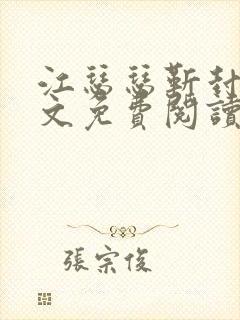 江瑟瑟靳封
文免費閱讀
張宗俊